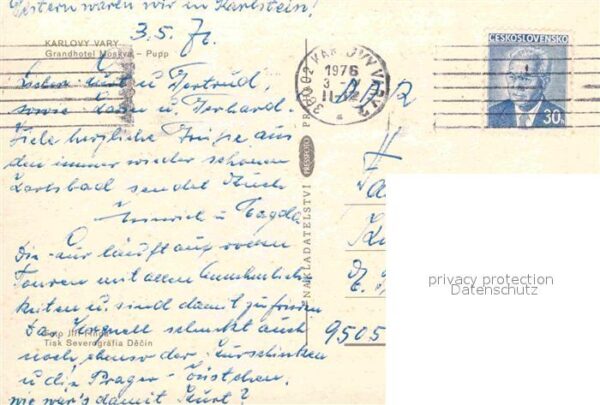 Gestern waren wir in Karlstein!
3.5.76.
KARLOVY VARY
Grandhotel Moskva – Pupp
Lieber Kurt u Gertrud,
sowie u Gerhard.
Viele herzliche Grüsse aus
dem immer wieder schönen
Karlsbad sendet Euch
Heinrich u Magda
Die Kur läuft auf vollen
Touren mit allen Annehmlich-
keiten u. sind damit zufrieden
Da schmeckt auch
noch ebenso der
u die Prager - Würstchen,
wie wär's damit Kurt?
Foto Jiří
Tisk Severografia Děčín
NAKLADATELSTVÍ PRESSFOTO PRAHA
KARLOVY VARY 1
1976
3
11-12
ČESKOSLOVENSKO
30h
DDR
9505
privacy protection
Datenschutz